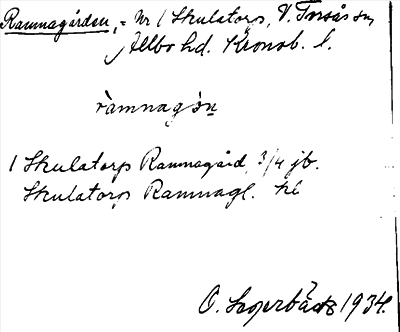 Ramnagården, = Nr 1 Skulatorp, V. Torsås sn,
Allbo hd. Kronob. l.
ràmnagɔ̀n
1 Skulatorp Ramnagård, 3/4 jb.
Skulatorps Ramnagl. hé
O. 1934.